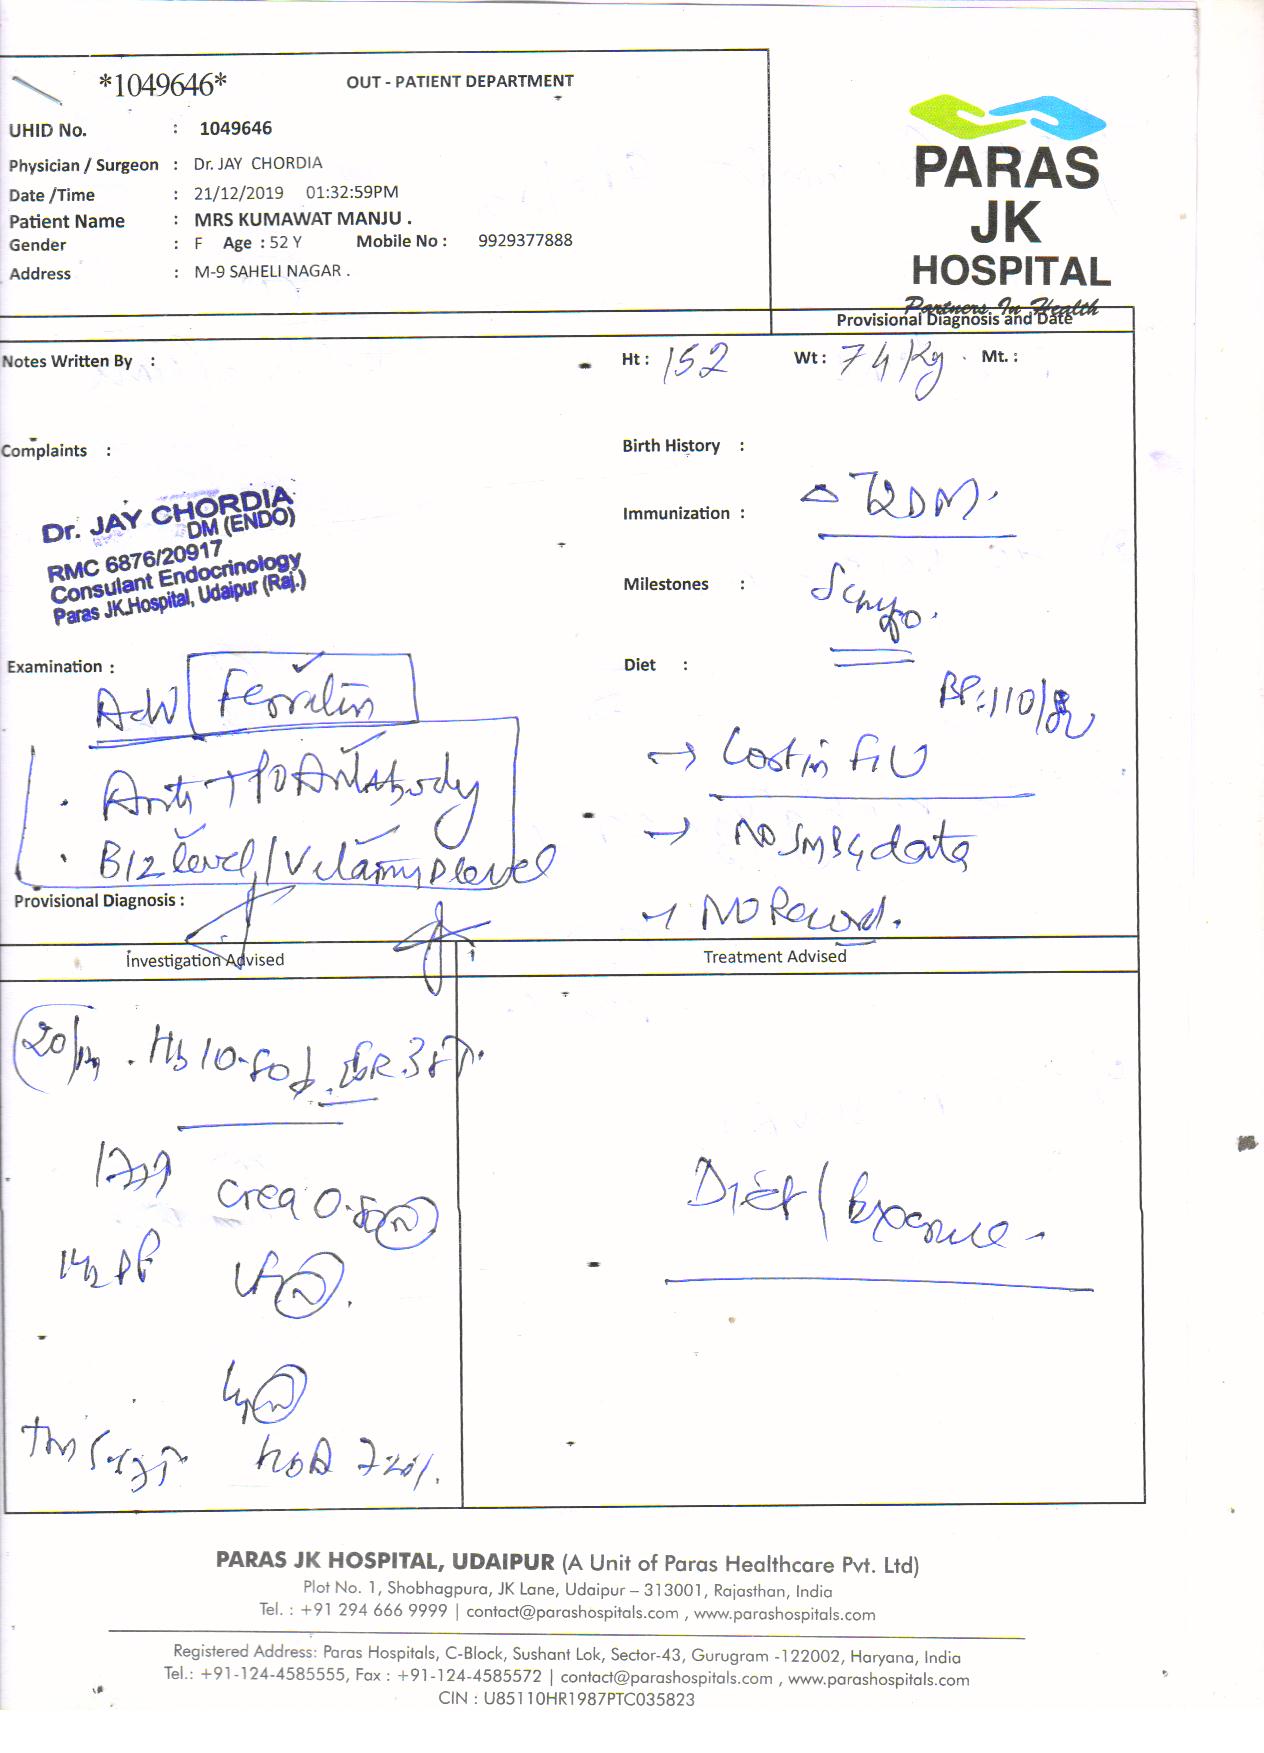 *1049646* OUT - PATIENT DEPARTMENT
UHID No. : 1049646
Physician / Surgeon : Dr. JAY CHORDIA
Date /Time : 21/12/2019 01:32:59PM
Patient Name : MRS KUMAWAT MANJU .
Gender : F Age : 52 Y Mobile No : 9929377888
Address : M-9 SAHELI NAGAR .
PARAS
JK
HOSPITAL
Partners In Health
Provisional Diagnosis and Date
Notes Written By : Ht : 152 Wt : 74 Kg Mt. :
Complaints :
Birth History :
Dr. JAY CHORDIA
DM (ENDO)
RMC 6876/20917
Consulant Endocrinology
Paras JK.Hospital, Udaipur (Raj.)
Immunization : △ T2DM.
Milestones :
Examination :
Diet :
Adv Ferritin
BP: 110/
Anti TPO Antibody
→ Lost in F/U
B12 level / Vitamin D level
→ No SMBG data
→ No Record.
Provisional Diagnosis :
Investigation Advised
Treatment Advised
Hb 10.
Crea 0.
Diet / Exercise -
PARAS JK HOSPITAL, UDAIPUR (A Unit of Paras Healthcare Pvt. Ltd)
Plot No. 1, Shobhagpura, JK Lane, Udaipur – 313001, Rajasthan, India
Tel. : +91 294 666 9999 | contact@parashospitals.com , www.parashospitals.com
Registered Address: Paras Hospitals, C-Block, Sushant Lok, Sector-43, Gurugram -122002, Haryana, India
Tel.: +91-124-4585555, Fax : +91-124-4585572 | contact@parashospitals.com , www.parashospitals.com
CIN : U85110HR1987PTC035823